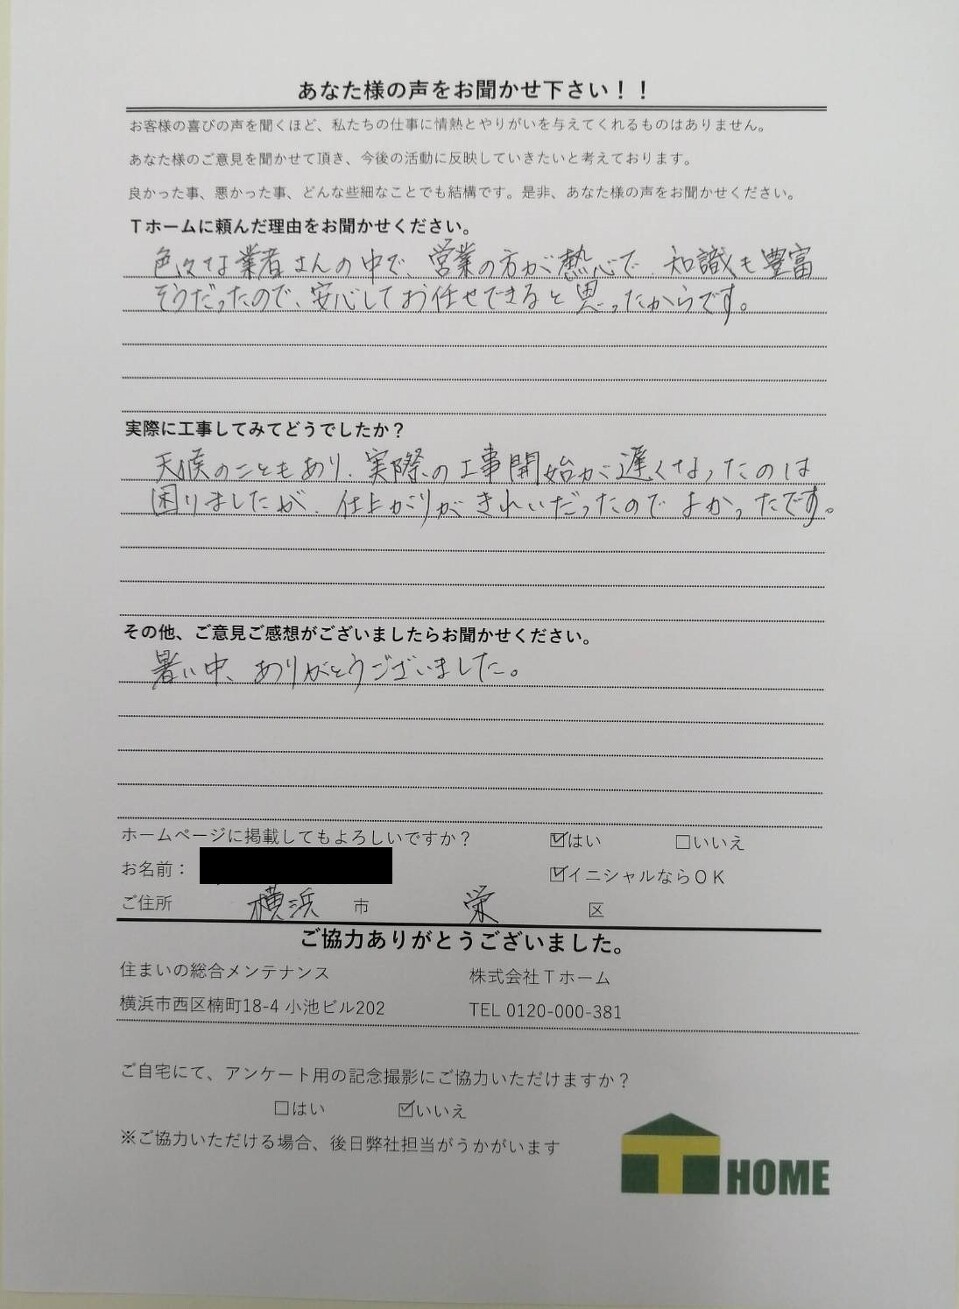 あなた様の声をお聞かせ下さい！！
お客様の喜びの声を聞くほど、私たちの仕事に情熱とやりがいを与えてくれるものはありません。
あなた様のご意見を聞かせて頂き、今後の活動に反映していきたいと考えております。
良かった事、悪かった事、どんな些細なことでも結構です。是非、あなた様の声をお聞かせください。
Ｔホームに頼んだ理由をお聞かせください。
色々な業者さんの中で、営業の方が熱心で、知識も豊富
そうだったので、安心してお任せできると思ったからです。
実際に工事してみてどうでしたか？
天候のこともあり、実際の工事開始が遅くなったのは
困りましたが、仕上がりがきれいだったのでよかったです。
その他、ご意見ご感想がございましたらお聞かせください。
暑い中、ありがとうございました。
ホームページに掲載してもよろしいですか？ ☑はい □いいえ
お名前： ☑イニシャルならＯＫ
ご住所 横浜 市 栄 区
ご協力ありがとうございました。
住まいの総合メンテナンス 株式会社Ｔホーム
横浜市西区楠町18-4 小池ビル202 TEL 0120-000-381
ご自宅にて、アンケート用の記念撮影にご協力いただけますか？
□はい ☑いいえ
※ご協力いただける場合、後日弊社担当がうかがいます
T HOME